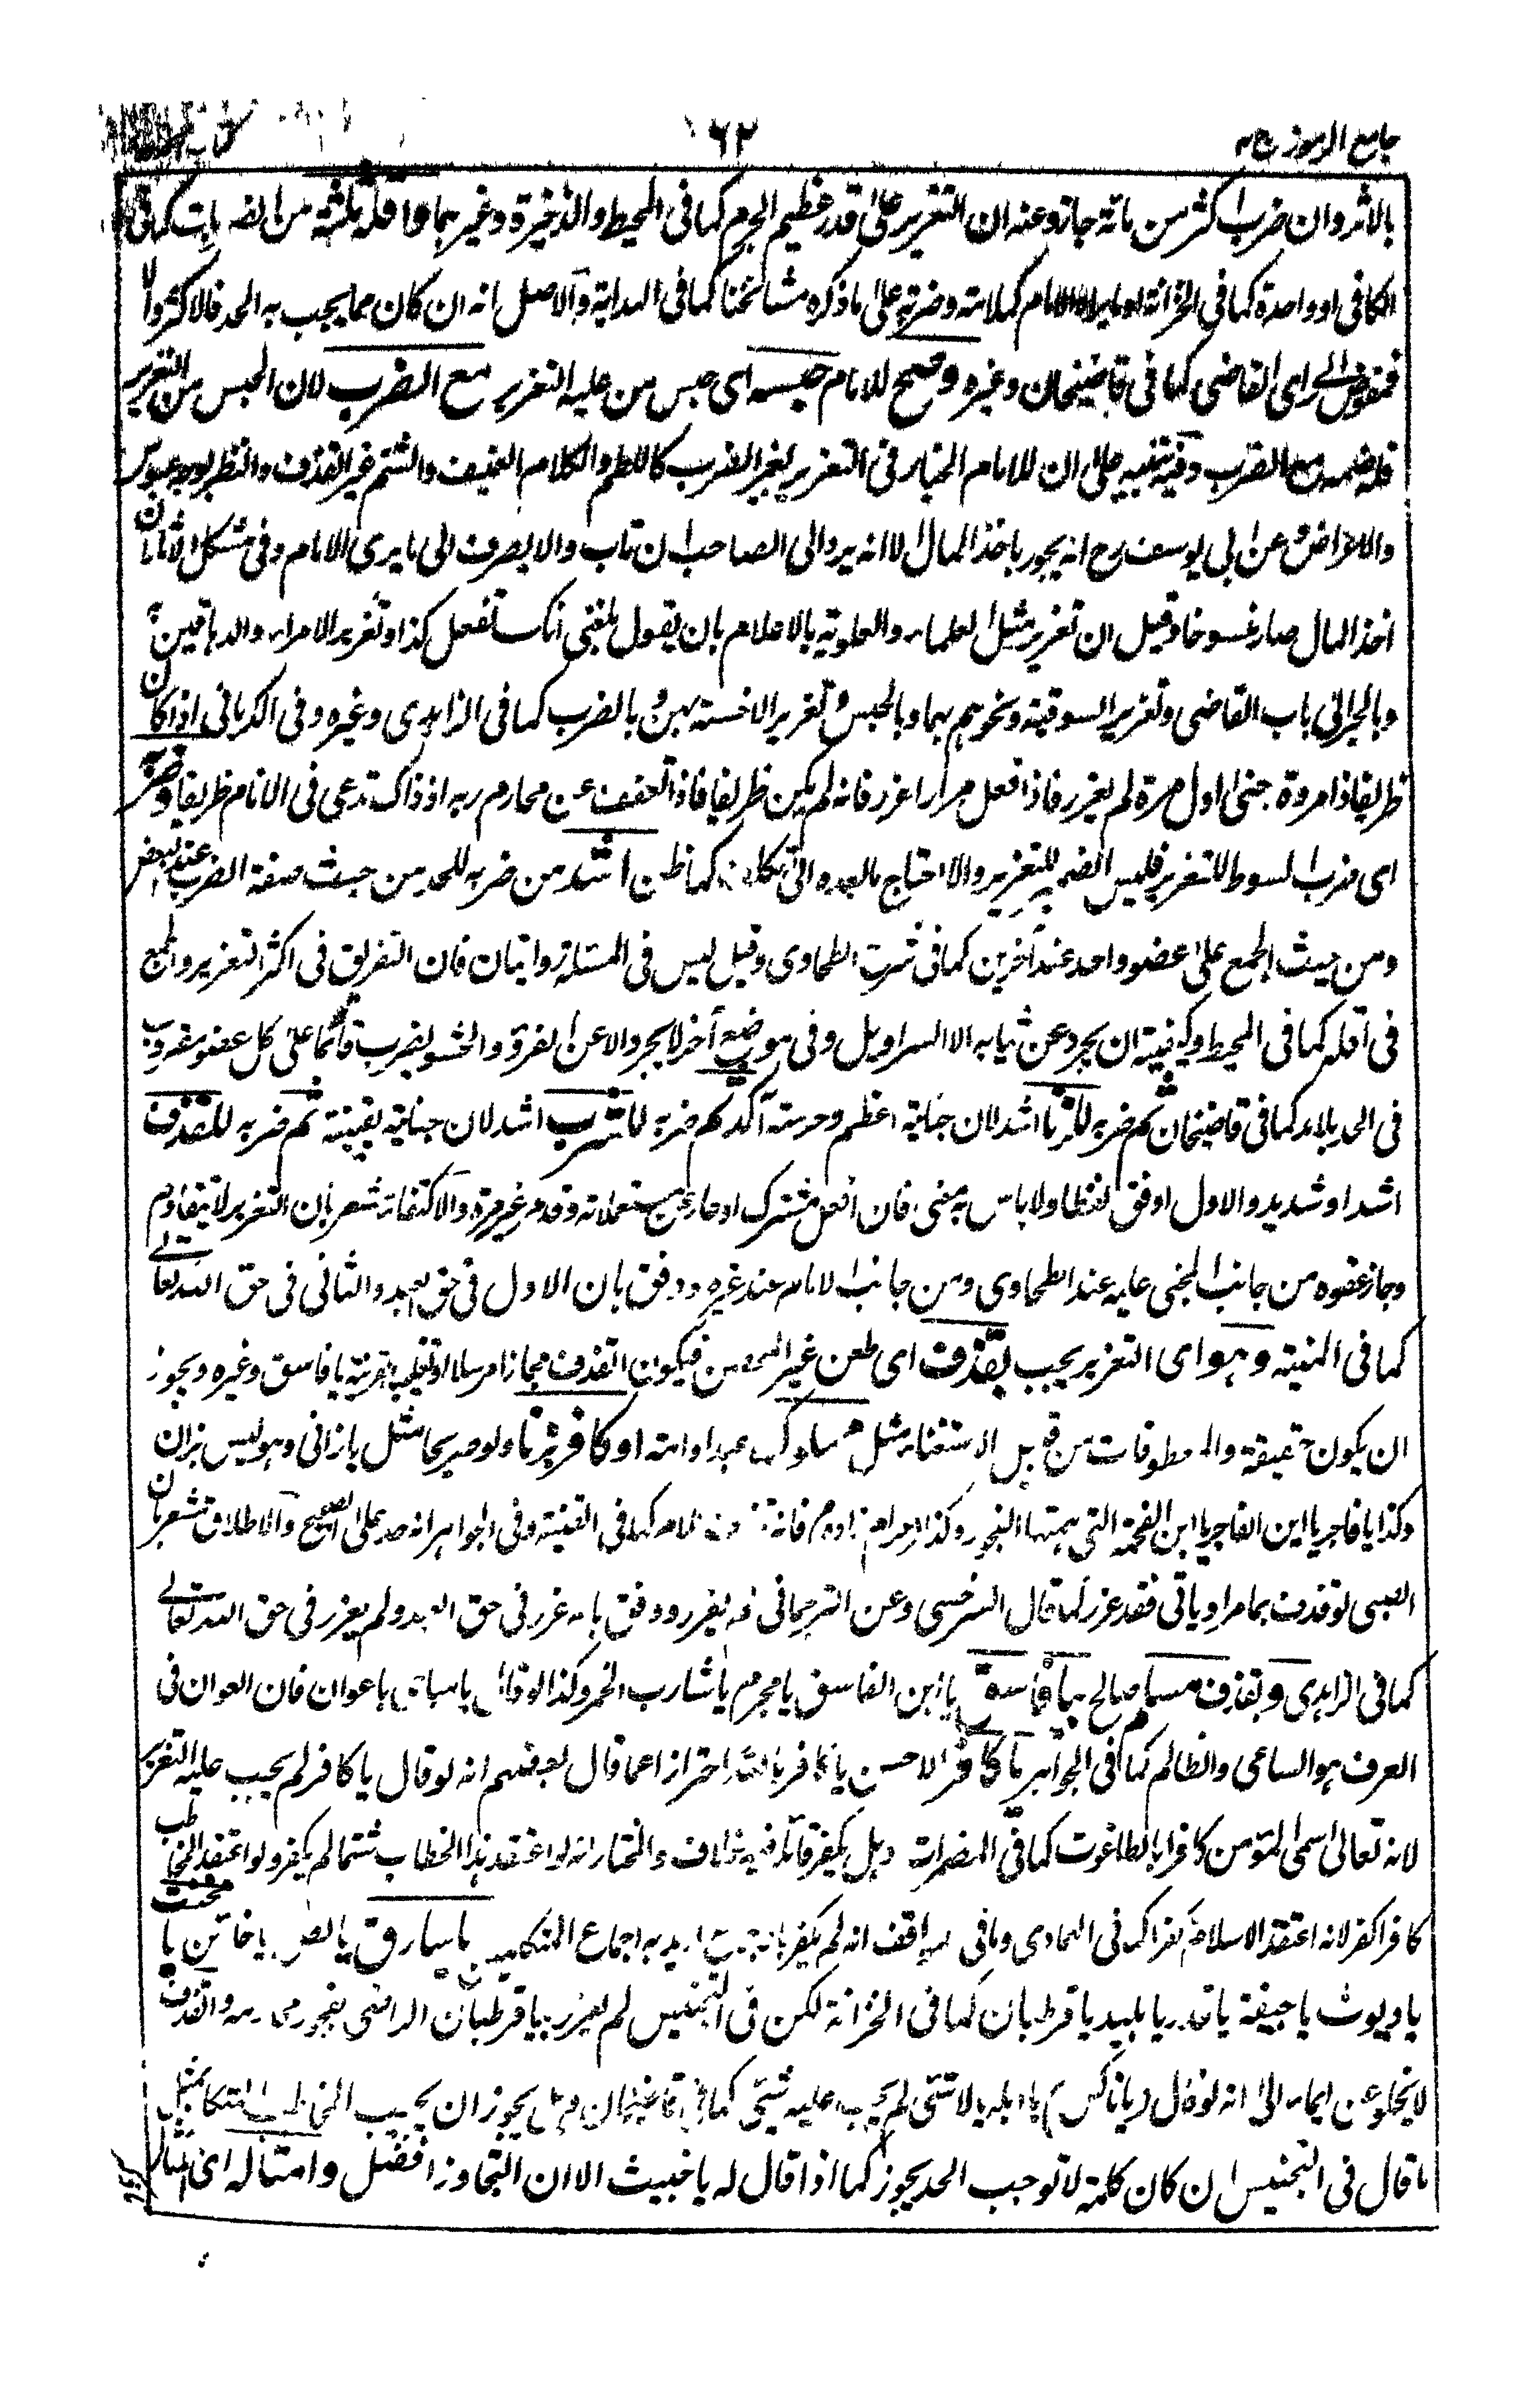 جامع الرموز ج ٣
٦٢
بالاثر وان ضرب اكثر من مائة جاز وعنه ان التعزير على قدر عظيم الجرم كما فى المحيط والذخيرة وغيرهما واقله ثلثة من الضربات كما فى
الكافى او واحدة كما فى الخزانة او ما يراه الامام كملامته وضربه على ما ذكره مشائخنا كما فى الهداية والاصل انه ان كان مما يجب به الحد فالاكثر والا
فمفوض الى راى القاضى كما فى قاضيخان وغيره وصح للامام حبسه اى حبس من عليه التعزير مع الضرب لان الحبس من التعزير
فله ضمه مع الضرب وفيه تنبيه على ان للامام الخيار فى التعزير بغير الضرب كاللطم والكلام العنيف والشتم غير القذف والنظر بوجه عبوس
والاعراض وعن ابى يوسف رح انه يجوز باخذ المال الا انه يرد الى الصاحب ان تاب والا يصرف الى ما يرى الامام وفى مشكل الاثار ان
اخذ المال صار منسوخا وقيل ان تعزير مثل العلماء والعلوية بالاعلام بان يقول بلغنى انك تفعل كذا وتعزير الامراء والدهاقين به
وبالجر الى باب القاضى وتعزير السوقية ونحوهم بهما وبالحبس وتعزير الاخسة بهن وبالضرب كما فى الزاهدى وغيره وفى الكرمانى اذا كان
ظريفا ذا مروة جنى اول مرة لم يعزر فاذا فعل مرارا عزر فانه لم يكن ظريفا فاذا تعفف عن محارم ربه اذ ذاك تدعى فى الانام ظريفا وضربه
اى ضرب السوط للتعزير فليس الضمير للتعزير والا احتاج ما بعده الى تكلف كما ظن اشد من ضربه للحد من حيث صفة الضرب عند البعض
ومن حيث الجمع على عضو واحد عند آخرين كما فى شرب الطحاوى وقيل ليس فى المسئلة روايتان فان التفريق فى اكثر التعزير والجمع
فى اقله كما فى المحيط وكيفيته ان يجرد عن ثيابه الا السراويل وفى موضع آخر لا يجرد الا عن الفرو والحشو يضرب قائما على كل عضو مضروب
فى الحد بلا مد كما فى قاضيخان ثم ضربه للزنا اشد لان جناية اعظم وحرمته آكد ثم ضربه للشرب اشد لان جناية يقينية ثم ضربه للقذف
اشد او شديد والاول اوفق لفظا ولا باس به معنى فان افعل مشترك او مستعملاته وقد مر غير مرة والاكتفاء مشعر بان التعزير لا يتقادم
وجاز عفوه من جانب المجنى عليه عند الطحاوى ومن جانب الامام عند غيره ووفق بان الاول فى حق العبد والثانى فى حق الله تعالى
كما فى المنية وهو اى التعزير يجب بقذف اى طعن غير المحصن فيكون القذف مجازا مرسلا او تغليبا بقرينة يا فاسق وغيره ويجوز
ان يكون حقيقة والمعطوفات من قبيل الاستغناء مثل مملوك عبدا او امة او كافر بزنا ولو صريحا مثل يا زانى وهو ليس بزان
وكذا يا فاجر يا ابن الفاجر يا ابن القحبة التى همتها الفجور وكذا كما فى القنية وفى الجواهر انه حد على الصحيح والاطلاق مشعر بان
الصبى لو قذف بما مر او ياتى فقد عزر كما قال السرخسى وعن الترجمانى انه يعزر ووفق بانه عزر فى حق العبد ولم يعزر فى حق الله تعالى
كما فى الزاهدى وبقذف مسلم صالح بيا فاسق يا ابن الفاسق يا مجرم يا شارب الخمر وكذا لو قال يا عوان فان العوان فى
العرف هو الساعى والظالم كما فى الجواهر يا كافر الاحسن يا كافر بالله احترازا عما قال بعضهم انه لو قال يا كافر لم يجب عليه التعزير
لانه تعالى اسمى المؤمن كافرا بالطاغوت كما فى المضمرات وهل يكفر قائله فيه خلاف والمختار انه لو اعتقد هذا الخطاب شتما لم يكفر ولو اعتقد المخاطب
كافرا كفر لانه اعتقد الاسلام كفرا كما فى العمادى وما فى المواقف انه لم يكفر اريد به اجماع المتكلمين يا سارق يا لص يا خائن يا مخنث
يا ديوث يا جيفة يا قذر يا بليد يا قرطبان كما فى الخزانة لكن فى التجنيس لم يعزر بيا قرطبان الراضى بفجور والقذف
لا يخلو عن ايماء الى انه لو قال (يا ناكس) يا ابله يا لا شئ لم يجب عليه شئ كما فى قاضيخان وهل يجوز ان يجيب المخاطب المتكلم بمثل
ما قال فى التجنيس ان كان كلمة لا توجب الحد يجوز كما اذا قال له يا خبيث الا ان التجاوز افضل وامثاله اى امثال